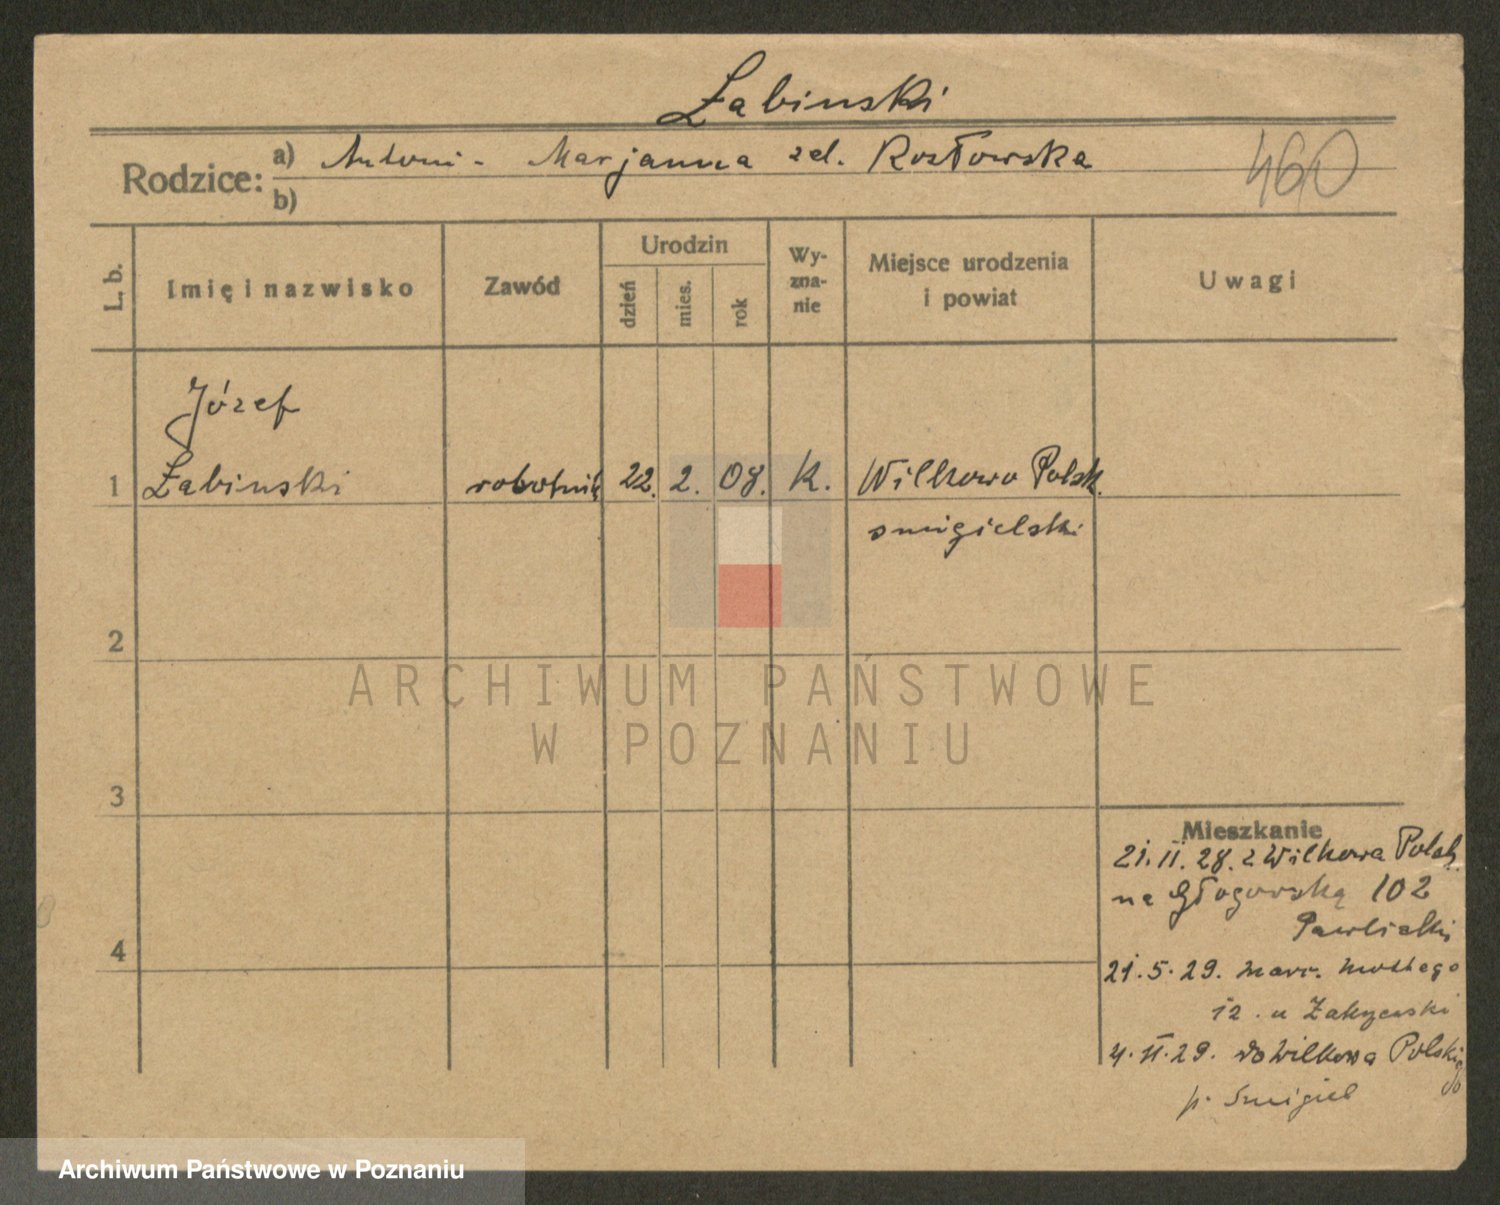 Żabinski
Rodzice: a) Antoni - Marjanna zd. Kozłowska
b)
460
L. b. Imię i nazwisko Zawód Urodzin dzień mies. rok Wyznanie Miejsce urodzenia i powiat Uwagi
Józef
1 Żabinski robotnik 22. 2. 08. K. Wilkowo Polsk.
smigielski
2
ARCHIWUM PAŃSTWOWE
W POZNANIU
3
Mieszkanie
21. II. 28. z Wilkowa Polsk.
na Głogowską 102
4
21. 5. 29. marc. Mottego
12. u Zakrzewski
4. II. 29. do Wilkowa Polskiego
p. Smigiel
Archiwum Państwowe w Poznaniu